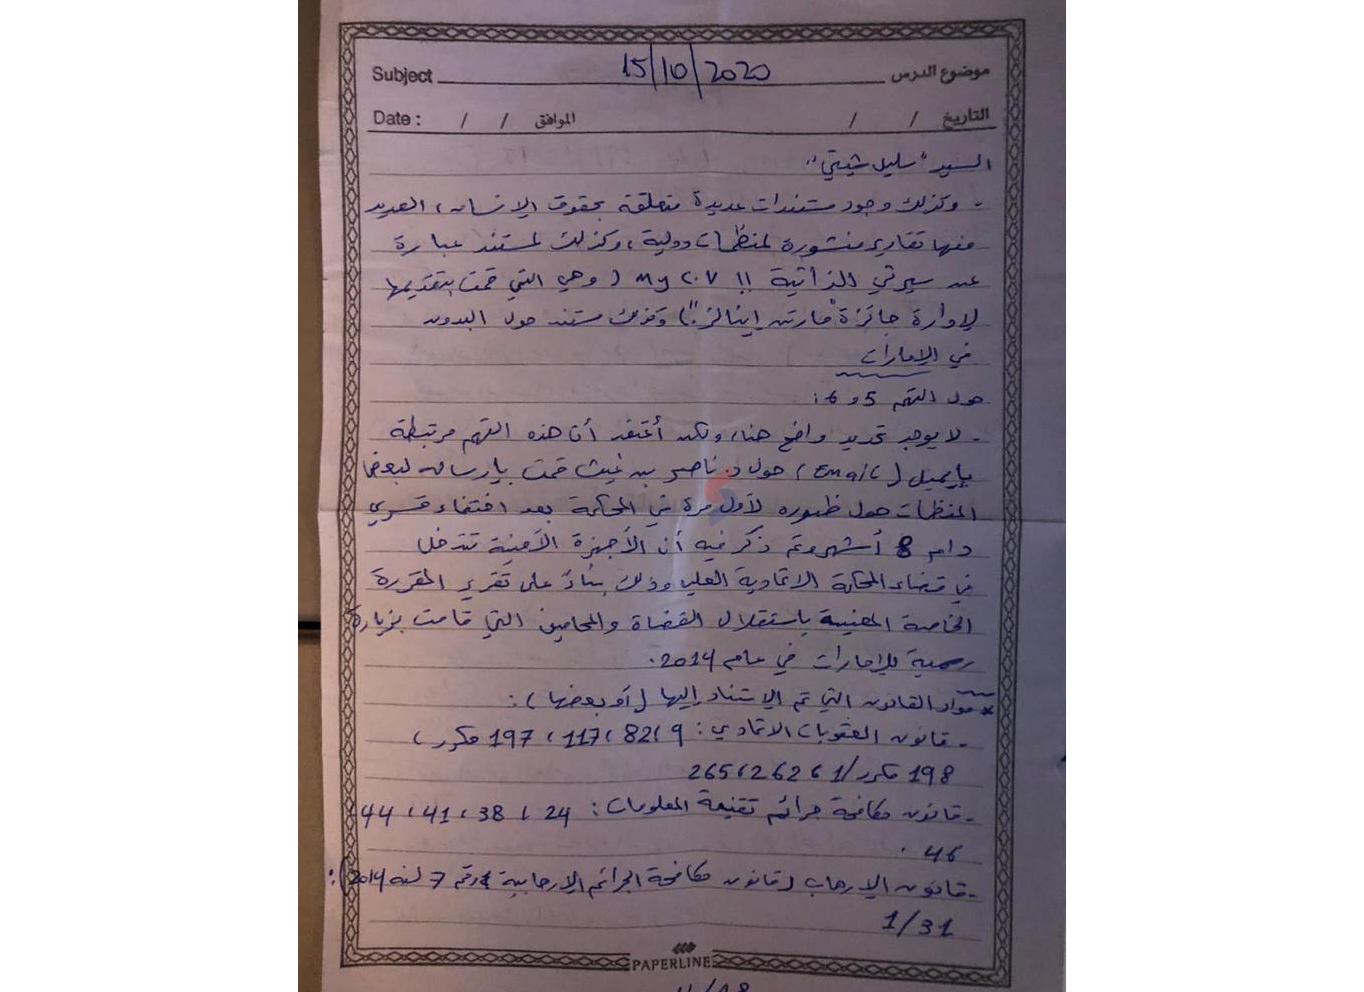 Subject 15/10/2020 موضوع الدرس
Date : / / الموافق / / التاريخ
السيد "سليل شيتي".
- وكذلك وجود مستندات عديدة متعلقة بحقوق الإنسان، العديد
منها تقارير منشورة لمنظمات دولية، وكذلك لمستند عبارة
عن سيرتي الذاتية !! My C.V ( وهي التي قمت بتقديمها
لإدارة جائزة "مارتن إينالز") وكذلك مستند حول البدون
في الإمارات
حول التهم 5 و 6:
- لا يوجد تحديد واضح هنا، ولكن أعتقد أن هذه التهم مرتبطة
بإيميل (Email) حول د. ناصر بن غيث قمت بإرساله لبعض
المنظمات حول ظهوره لأول مرة في المحكمة بعد اختفاء قسري
دام 8 أشهر وتم ذكر فيه أن الأجهزة الأمنية تتدخل
في قضاء المحكمة الاتحادية العليا وذلك بناءً على تقرير المقررة
الخاصة المعنية باستقلال القضاة والمحامين التي قامت بزيارة
رسمية للإمارات في عام 2014.
* مواد القانون التي تم الاستناد إليها (أو بعضها):
- قانون العقوبات الاتحادي: 9، 82، 117، 197 مكرر،
198 مكرر/1، 262، 265
- قانون مكافحة جرائم تقنية المعلومات: 24، 38، 41، 44،
46.
- قانون الإرهاب (قانون مكافحة الجرائم الإرهابية رقم 7 لسنة 2014):
1/31
PAPERLINE